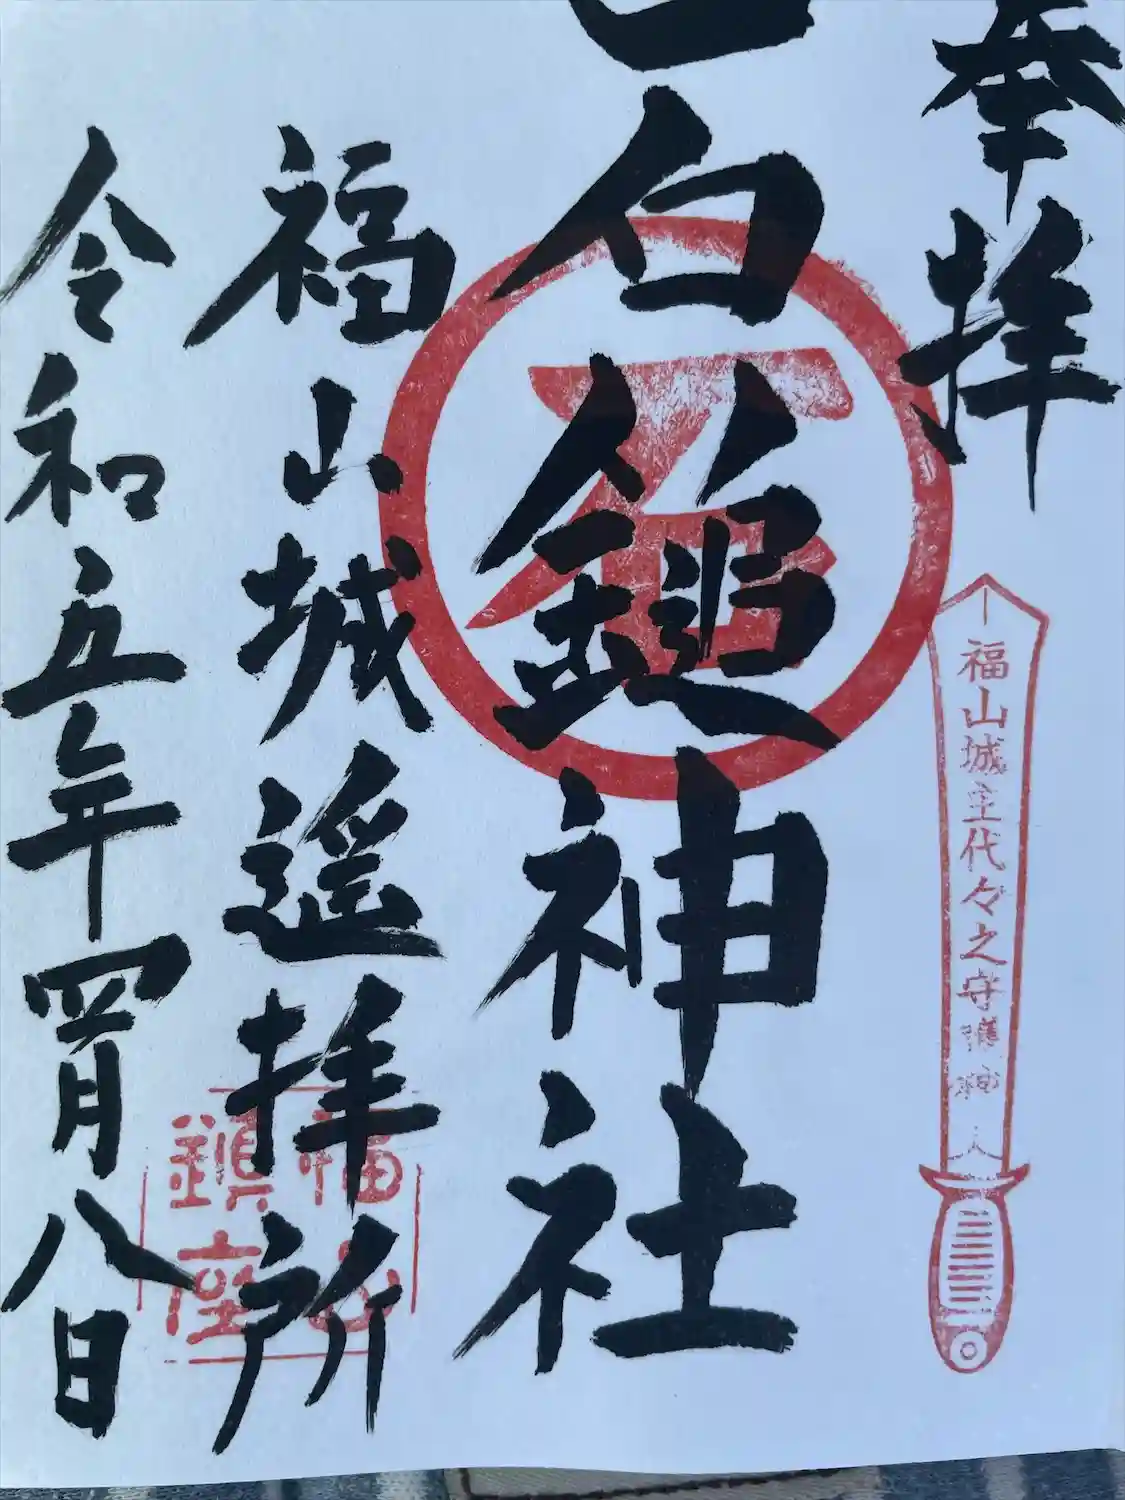 奉拝
福山城主代々之守護神
石鎚神社
石
福山城遥拝所
福山
鎮座
令和五年四月八日